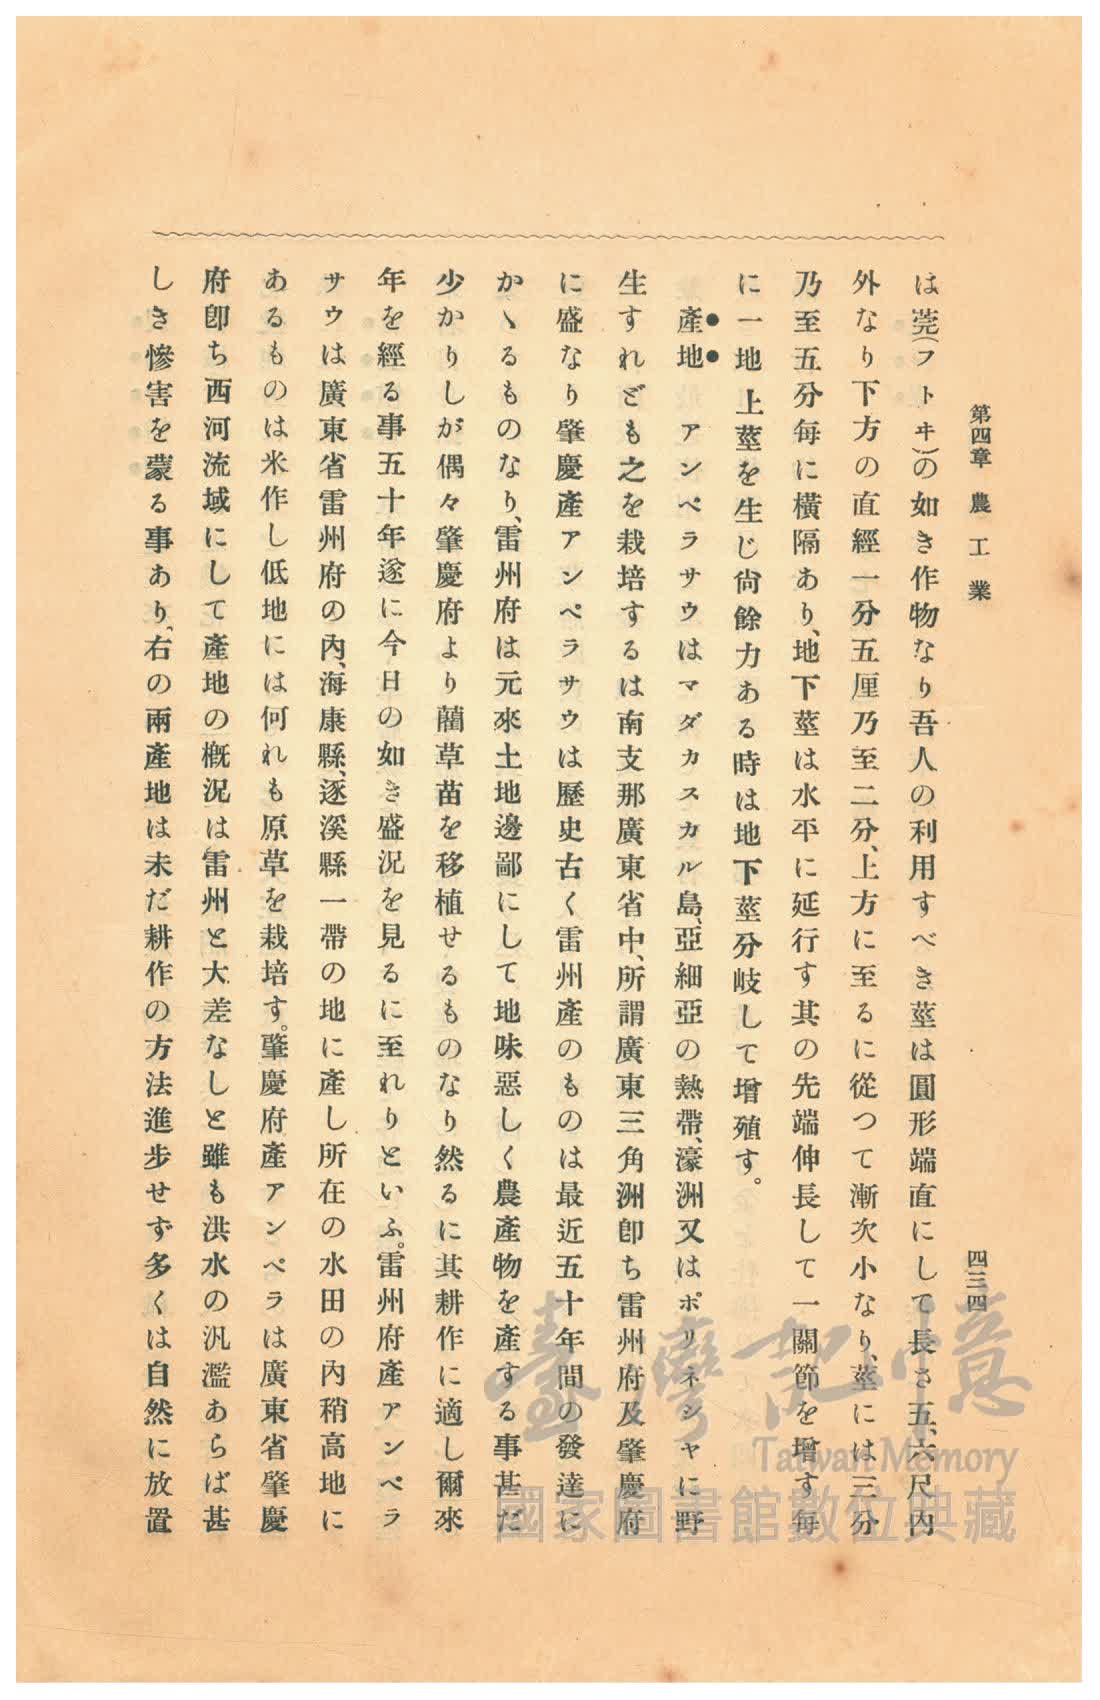 第四章 農工業
四三四
は莞(フトヰ)の如き作物なり吾人の利用すべき莖は圓形端直にして長さ五、六尺內
外なり下方の直經一分五厘乃至二分、上方に至るに從つて漸次小なり、莖には三分
乃至五分每に橫隔あり、地下莖は水平に延行す其の先端伸長して一關節を增す每
に一地上莖を生じ尙餘力ある時は地下莖分岐して增殖す。
產地 アンペラサウはマダカスカル島、亞細亞の熱帶、濠洲又はポリネシヤに野
生すれども之を栽培するは南支那廣東省中、所謂廣東三角洲卽ち雷州府及肇慶府
に盛なり肇慶產アンペラサウは歷史古く雷州產のものは最近五十年間の發達に
かゝるものなり、雷州府は元來土地邊鄙にして地味惡しく農產物を產する事甚だ
少かりしが偶々肇慶府より藺草苗を移植せるものなり然るに其耕作に適し爾來
年を經る事五十年遂に今日の如き盛況を見るに至れりといふ。雷州府產アンペラ
サウは廣東省雷州府の內、海康縣、逐溪縣一帶の地に產し所在の水田の內稍高地に
あるものは米作し低地には何れも原草を栽培す。肇慶府產アンペラは廣東省肇慶
府卽ち西河流域にして產地の槪況は雷州と大差なしと雖も洪水の汎濫あらば甚
しき慘害を蒙る事あり、右の兩產地は未だ耕作の方法進步せず多くは自然に放置
臺灣記憶
Taiwan Memory
國家圖書館數位典藏